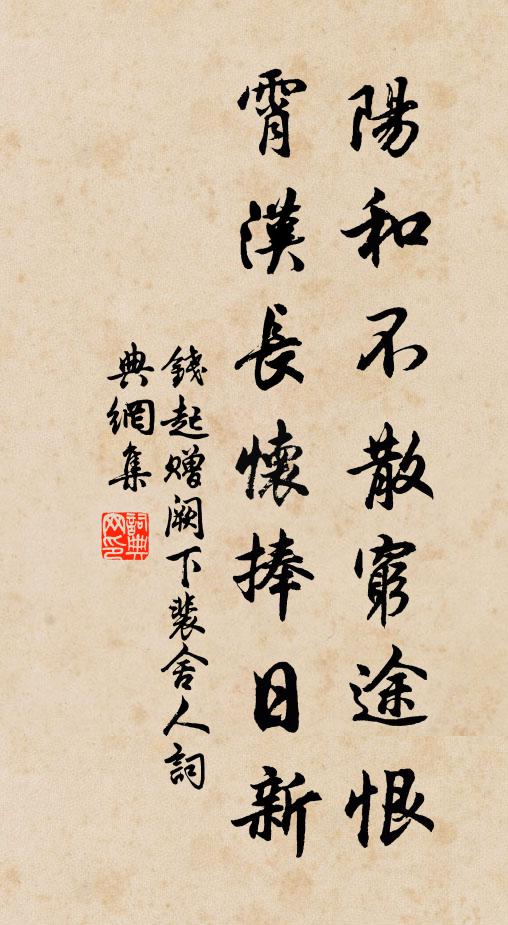 陽和不散窮途恨
霄漢長懷捧日新
錢起贈闕下裴舍人詞
典網集
詞典
网印